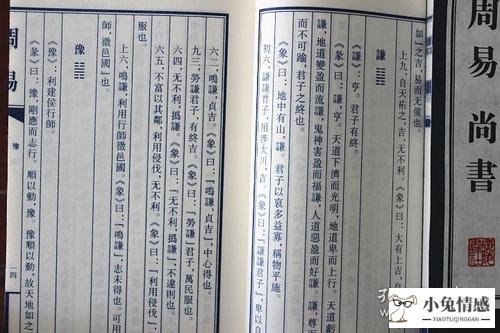 周易 尚書
如」之吉,易而无備也。
上九,自天祐之,吉,无不利。《象》曰:大有上吉,自
謙 ䷎
《謙》:亨。君子有終。
《彖》曰:謙,亨。天道下濟而光明,地道卑而上行。天道虧
謙,地道變盈而流謙,鬼神害盈而福謙,人道惡盈而好謙。謙,尊
而不可踰,君子之終也。
《象》曰:地中有山,謙。君子以裒多益寡,稱物平施。
初六,謙謙君子,用涉大川,吉。《象》曰:「謙謙君子」,卑以自
六二,鳴謙,貞吉。《象》曰:「鳴謙,貞吉」,中心得也。
九三,勞謙君子,有終吉。《象》曰:「勞謙」君子,萬民服也。
六四,无不利,撝謙。《象》曰:「无不利,撝謙」,不違則也。
六五,不富以其鄰,利用侵伐,无不利。《象》曰:「利用侵伐」,
服也。
上六,鳴謙,利用行師徵邑國。《象》曰:「鳴謙」,志未得也。可用
師,徵邑國」也。
豫 ䷏
《豫》:利建侯行師。
《彖》曰:豫,剛應而志行,順以動,豫。豫順以動,故天地如之
周易
豫
一四
小兔情感
XIAOTUQINGGAN